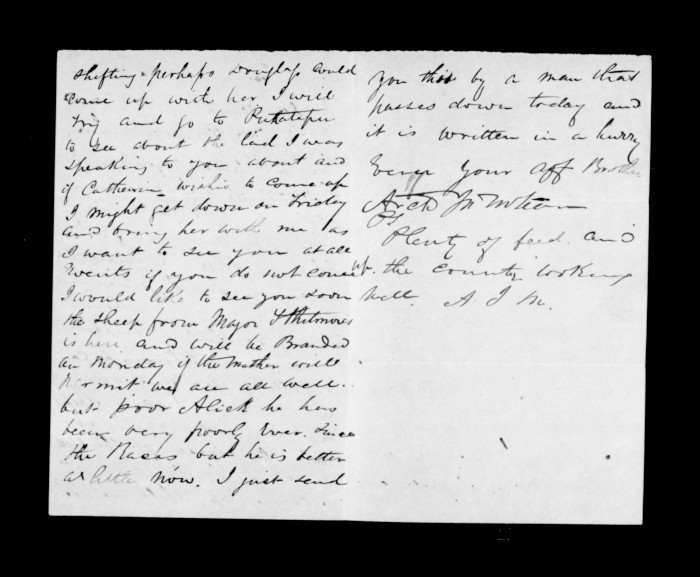 shifting perhaps Douglas could
come up with her I will
try and go to Pukatapu
to see about the lad I was
speaking to you about and
if Catherin wishes to come up
I might get down on Friday
and bring her with me as
I want to see you at all
events if you do not come up.
I would like to see you soon
the sheep from Major Whitmores
is here and will be Branded
on Monday if the weather will
permit we are all well.
but poor Alick he has
been very poorly ever since
the Races but he is better
a little now. I just send
you this by a man that
passes down today and
it is written in a hurry
Ever your aff Brother
Arch McLean
PS
Plenty of feed and
the country looking
well. A J M.